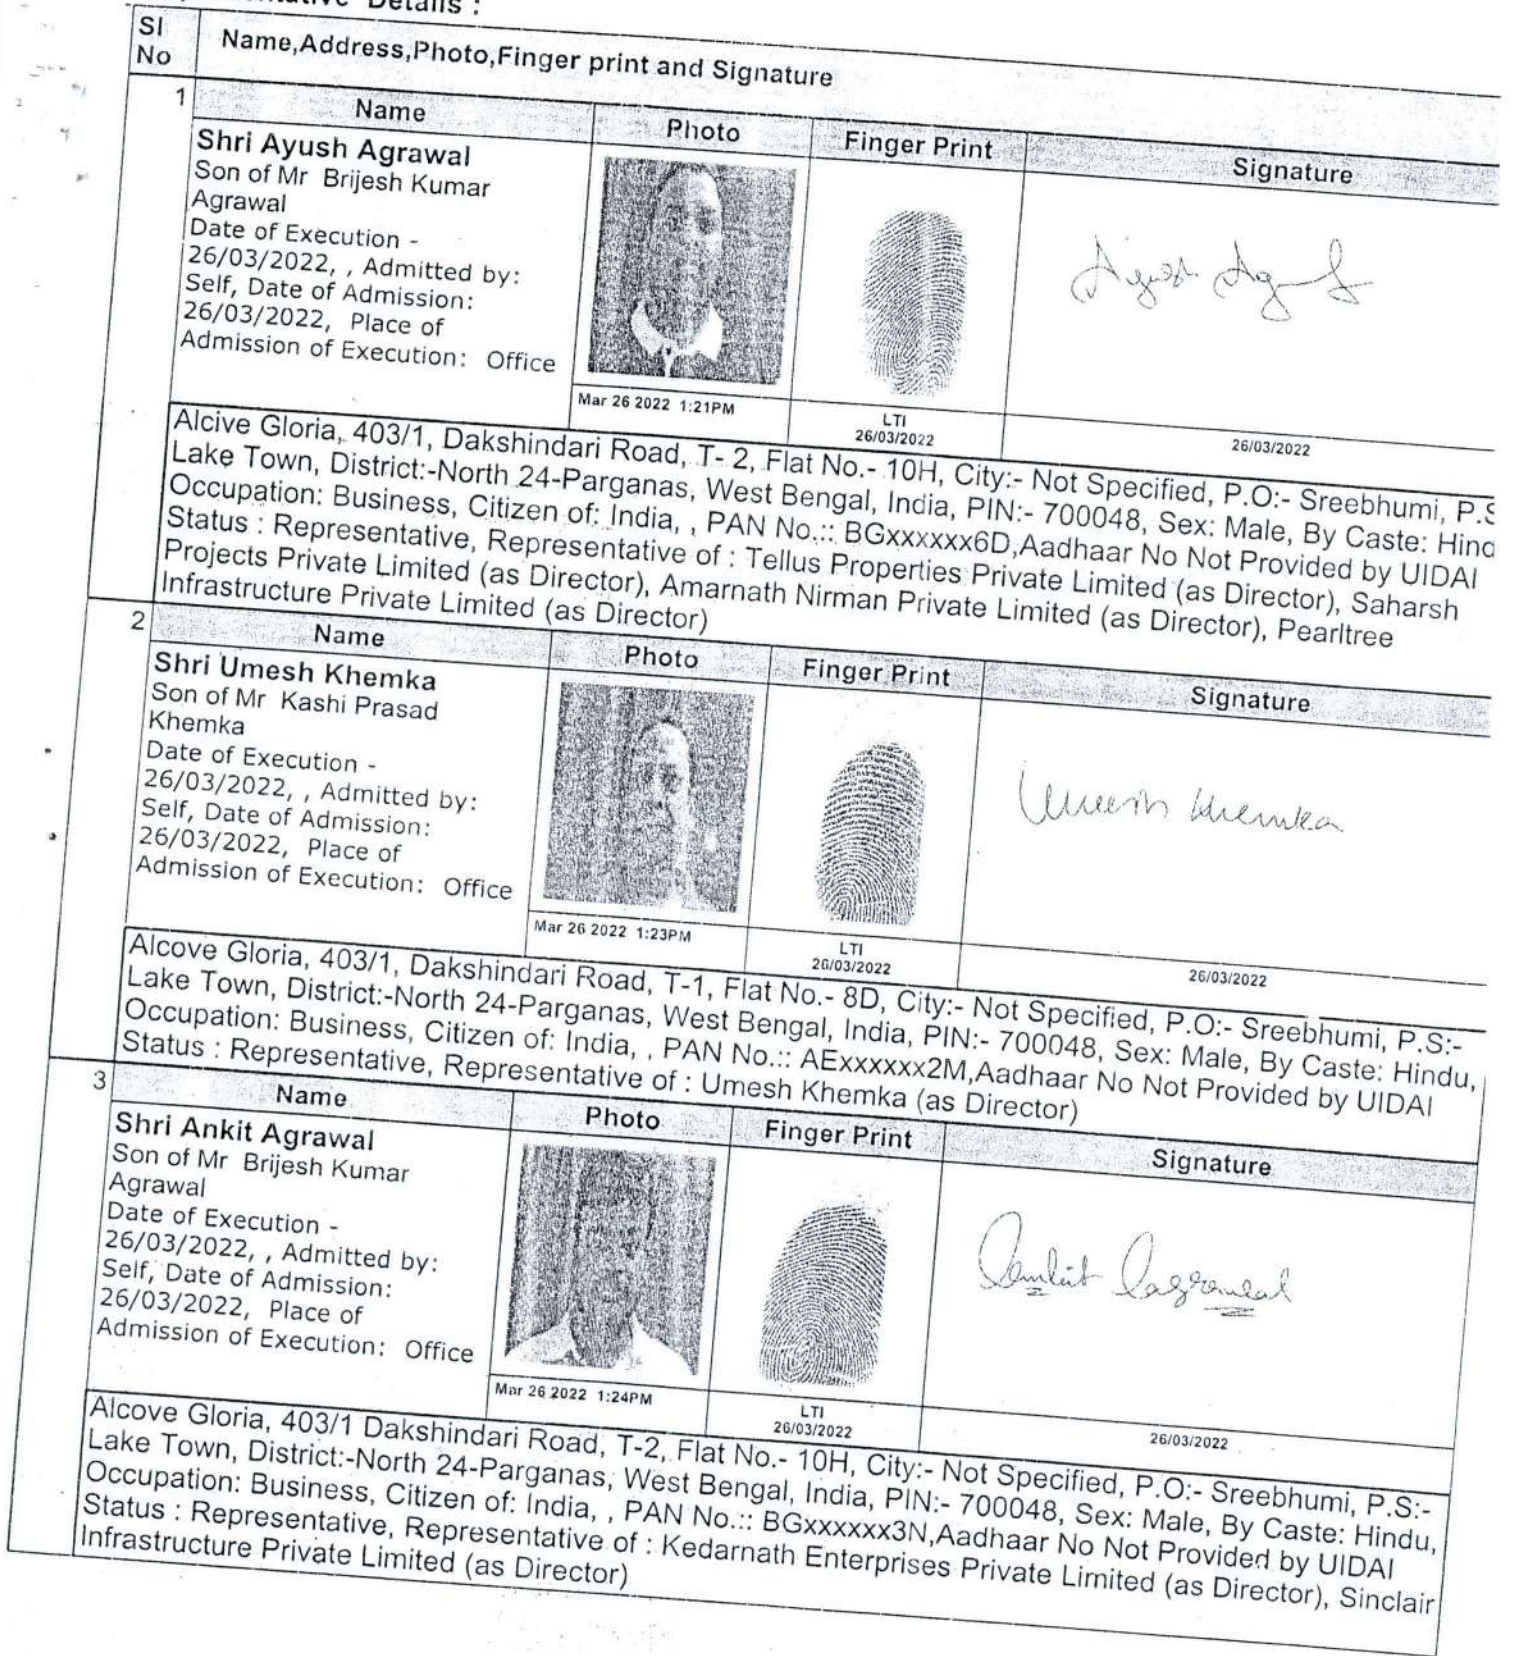 Details :
Sl
No
Name,Address,Photo,Finger print and Signature
1
Name
Photo
Finger Print
Signature
Shri Ayush Agrawal
Son of Mr Brijesh Kumar
Agrawal
Date of Execution -
26/03/2022, , Admitted by:
Self, Date of Admission:
26/03/2022, Place of
Admission of Execution: Office
Ayush Ag
Mar 26 2022 1:21PM
LTI
26/03/2022
26/03/2022
Alcive Gloria, 403/1, Dakshindari Road, T- 2, Flat No.- 10H, City:- Not Specified, P.O:- Sreebhumi, P.S
Lake Town, District:-North 24-Parganas, West Bengal, India, PIN:- 700048, Sex: Male, By Caste: Hind
Occupation: Business, Citizen of: India, , PAN No.:: BGxxxxxx6D,Aadhaar No Not Provided by UIDAI
Status : Representative, Representative of : Tellus Properties Private Limited (as Director), Saharsh
Projects Private Limited (as Director), Amarnath Nirman Private Limited (as Director), Pearltree
Infrastructure Private Limited (as Director)
2
Name
Photo
Finger Print
Signature
Shri Umesh Khemka
Son of Mr Kashi Prasad
Khemka
Date of Execution -
26/03/2022, , Admitted by:
Self, Date of Admission:
26/03/2022, Place of
Admission of Execution: Office
Umesh Khemka
Mar 26 2022 1:23PM
LTI
26/03/2022
26/03/2022
Alcove Gloria, 403/1, Dakshindari Road, T-1, Flat No.- 8D, City:- Not Specified, P.O:- Sreebhumi, P.S:-
Lake Town, District:-North 24-Parganas, West Bengal, India, PIN:- 700048, Sex: Male, By Caste: Hindu,
Occupation: Business, Citizen of: India, , PAN No.:: AExxxxxx2M,Aadhaar No Not Provided by UIDAI
Status : Representative, Representative of : Umesh Khemka (as Director)
3
Name
Photo
Finger Print
Signature
Shri Ankit Agrawal
Son of Mr Brijesh Kumar
Agrawal
Date of Execution -
26/03/2022, , Admitted by:
Self, Date of Admission:
26/03/2022, Place of
Admission of Execution: Office
Ankit Agrawal
Mar 26 2022 1:24PM
LTI
26/03/2022
26/03/2022
Alcove Gloria, 403/1 Dakshindari Road, T-2, Flat No.- 10H, City:- Not Specified, P.O:- Sreebhumi, P.S:-
Lake Town, District:-North 24-Parganas, West Bengal, India, PIN:- 700048, Sex: Male, By Caste: Hindu,
Occupation: Business, Citizen of: India, , PAN No.:: BGxxxxxx3N,Aadhaar No Not Provided by UIDAI
Status : Representative, Representative of : Kedarnath Enterprises Private Limited (as Director), Sinclair
Infrastructure Private Limited (as Director)